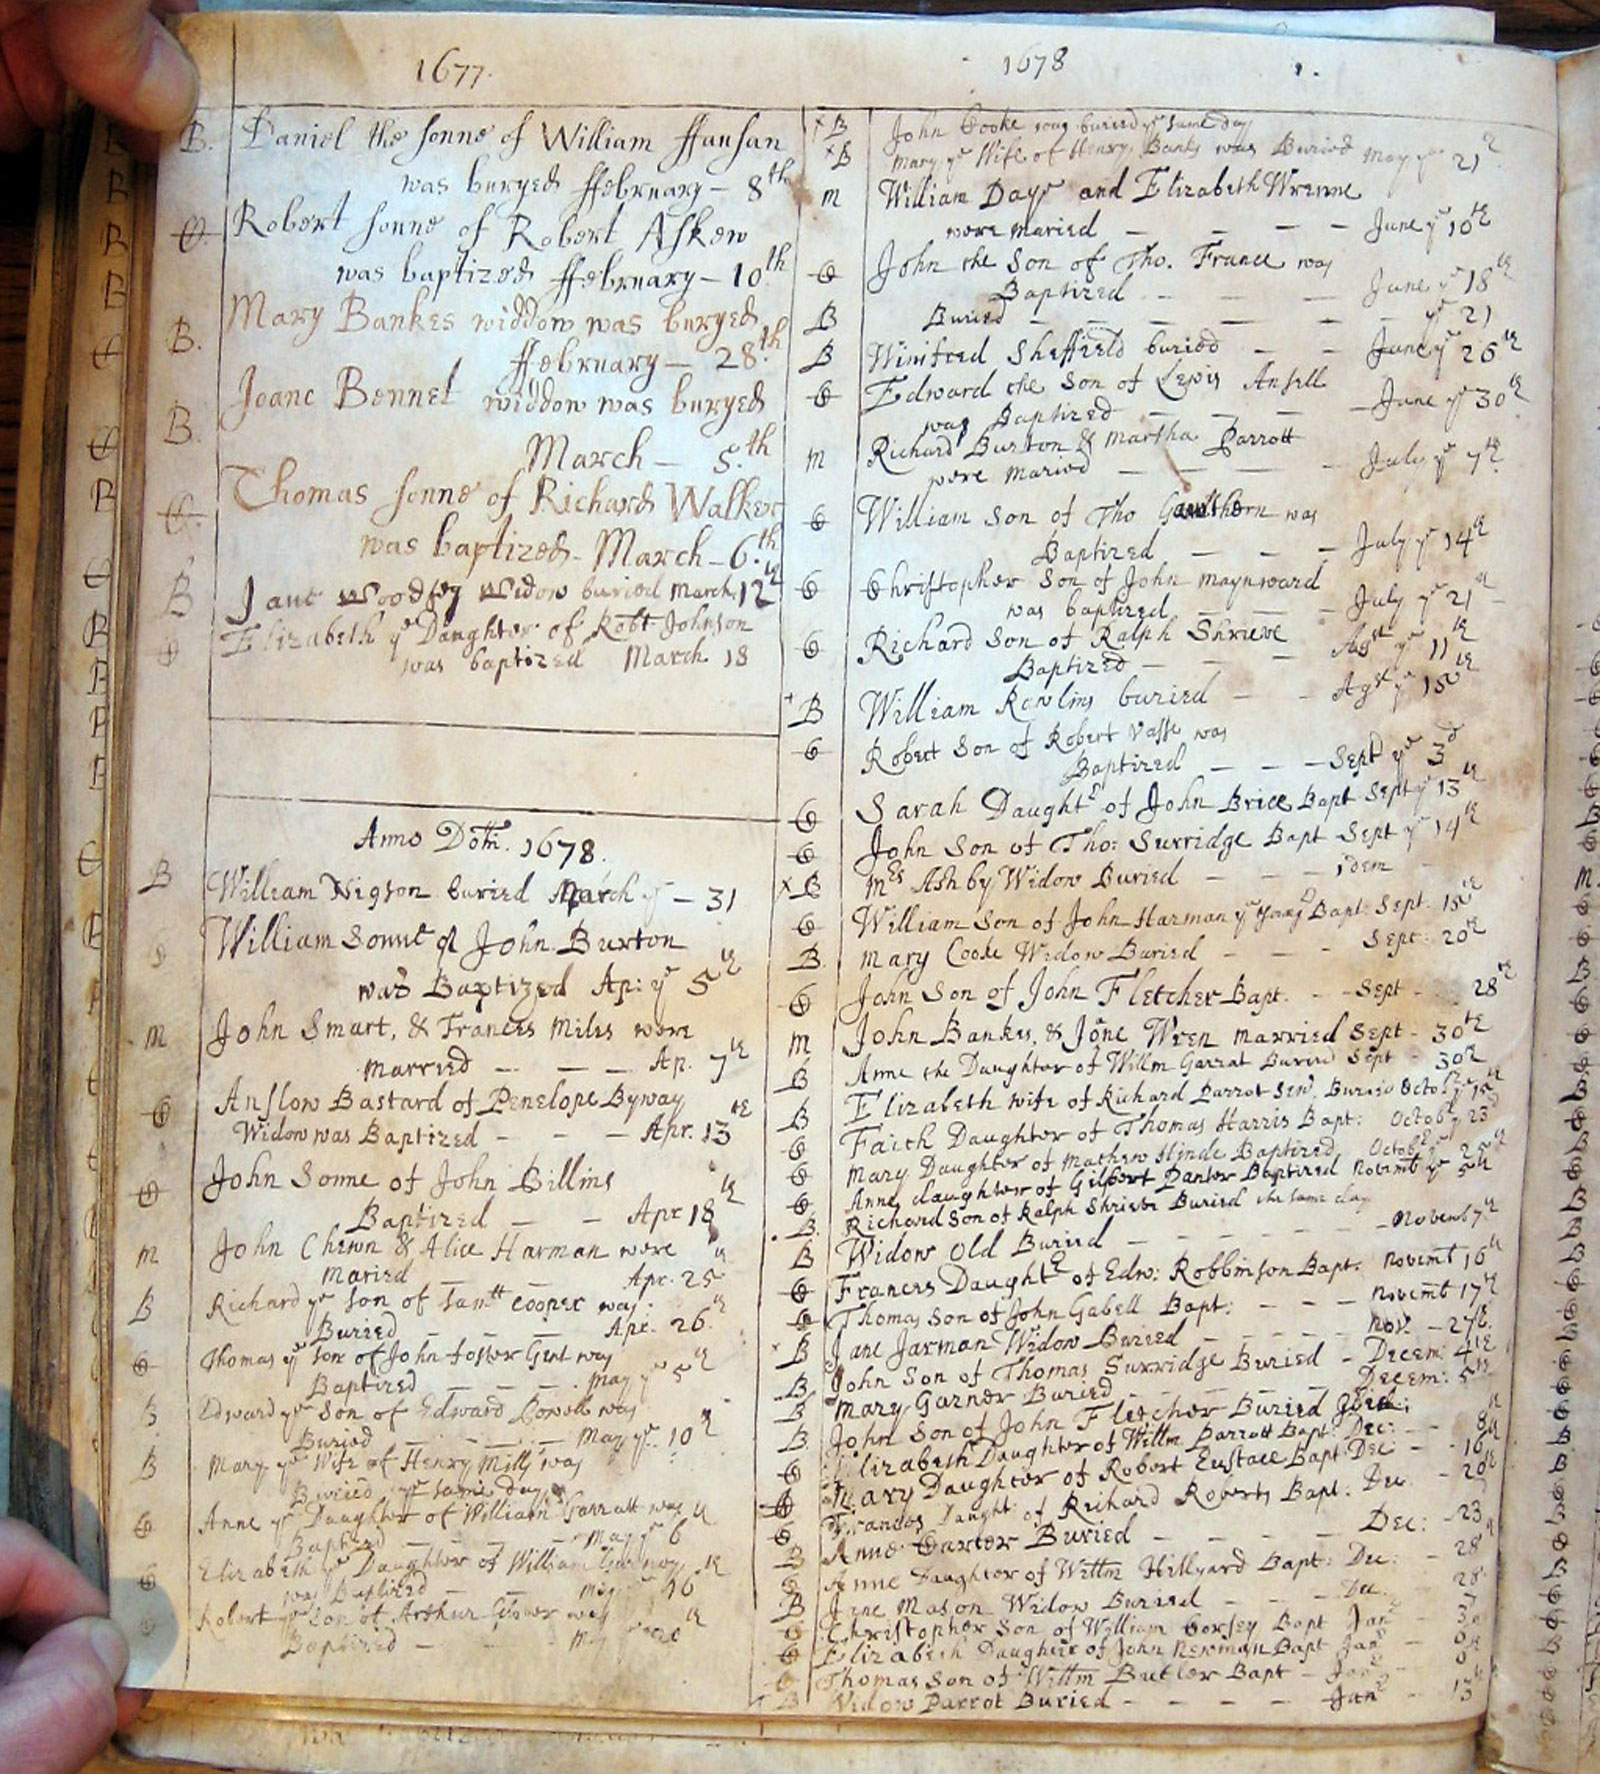 1677.
B. Daniel the sonne of William ffansan
was buryed ffebruary — 8th
Robert sonne of Robert Askew
was baptized ffebruary — 10th
B. Mary Bankes widdow was buryed
ffebruary — 28th
B. Joane Bennet widdow was buryed
March — 5.th
Thomas sonne of Richard Walker
was baptized - March — 6.th
B Jane widow buried March 12th
Elizabeth ye Daughter of Robt Johnson
was baptized March 18
Anno Dom. 1678.
B William Higson buried March ye — 31
William Sonne of John Burton
was Baptized Ap: ye 5th
m John Smart, & Frances Miles were
Married — — — Ap. 7th
Anslow Bastard of Penelope Byway
Widow was Baptized - - - Apr. 13th
John Sonne of John Billins
Baptized — — Apr 18th
m John Chewn & Alice Harman were
Maried Apr. 25th
B Richard ye son of Samll Cooper was
Buried — — — Apr. 26th
Thomas ye son of John Foster Gent was
Baptized — — — May ye 5th
B Edward ye Son of Edward was
Buried — — — May ye 10th
B Mary ye Wife of Henry Mills was
Buried ye same day
Anne ye Daughter of William Garratt was
Baptized — — — May ye 6th
Elizabeth ye Daughter of William
was Baptized — — May 16th
Robert ye Son of Arthur was
Baptized — — May
1678
B John Cooke was buried ye same day
B Mary ye Wife of Henry Banks was Buried May ye 21th
m William Daye and Elizabeth Wrenne
were maried — — — — June ye 10th
John the Son of Tho. France was
Baptized — — — June ye 18th
B Buried — — — — — — ye 21
B Winifred Sheffield buried — — June ye 26th
Edward the Son of Lewis Ansell
was Baptized — — — June ye 30th
m Richard Burton & Martha Parrott
were Maried — — — — July ye 7th
William Son of Tho was
Baptized — — — July ye 14th
Christopher Son of John Maynward
was baptized — — — July ye 21th
Richard Son of Ralph Shrieve
Baptized — — — Agst ye 11th
B William Rowlins buried — — Agst ye 15th
Robert Son of Robert Vasse was
Baptized — — — Sept ye 3d
Sarah Daughtr of John Brice Bapt Sept ye 13th
John Son of Tho: Surridge Bapt Sept ye 14th
B Mrs Ashby Widow Buried — — — idem
William Son of John Harman ye Bapt: Sept. 15th
B. Mary Cooke Widow Buried — — - Sept: 20th
John Son of John Fletcher Bapt. - - Sept - 28th
m John Bankes, & Jone Wren Married Sept - 30th
B Anne the Daughter of Willm Garrat Buried Sept - 30th
B Elizabeth wife of Richard Parrot Senr. Buried Octobr ye 15th
Faith Daughter of Thomas Harris Bapt: Octobr ye 23d
Mary Daughter of Mathew Hinde Baptized Octobr ye 25th
Anne daughter of Gilbert Panter Baptized Novembr ye 5th
B. Richard Son of Ralph Shrieve Buried the same day
B Widow Old Buried — — — — — — Novemb 7th
Frances Daughtr of Edw: Robbinson Bapt. Novemt 16th
Thomas Son of John Gabell Bapt: - - - Novemt 17th
B Jane Jarman Widow Buried - - - - - Nov. - 27th.
B John Son of Thomas Surridge Buried - Decem: 4th
B Mary Garner Buried — — — — Decem: 5th
B. John Son of John Fletcher Buried
Elizabeth Daughter of Willm Parrott Bapt: Dec: - - 8th
Mary Daughter of Robert Eustace Bapt Dec - - 16th
Frances Daught: of Richard Roberts Bapt: Dec. - 20th
B Anne Carter Buried — — — — — Dec: - 23
Anne Daughter of Willm Hillyard Bapt: Dec: - 28
B Jane Mason Widow Buried — — — Dec: 28
Christopher Son of William Bapt Janr
Elizabeth Daughter of John Newman Bapt Janr
Thomas Son of Willm Butler Bapt - Janr
B Widow Parrot Buried - - - - Janr - 13th